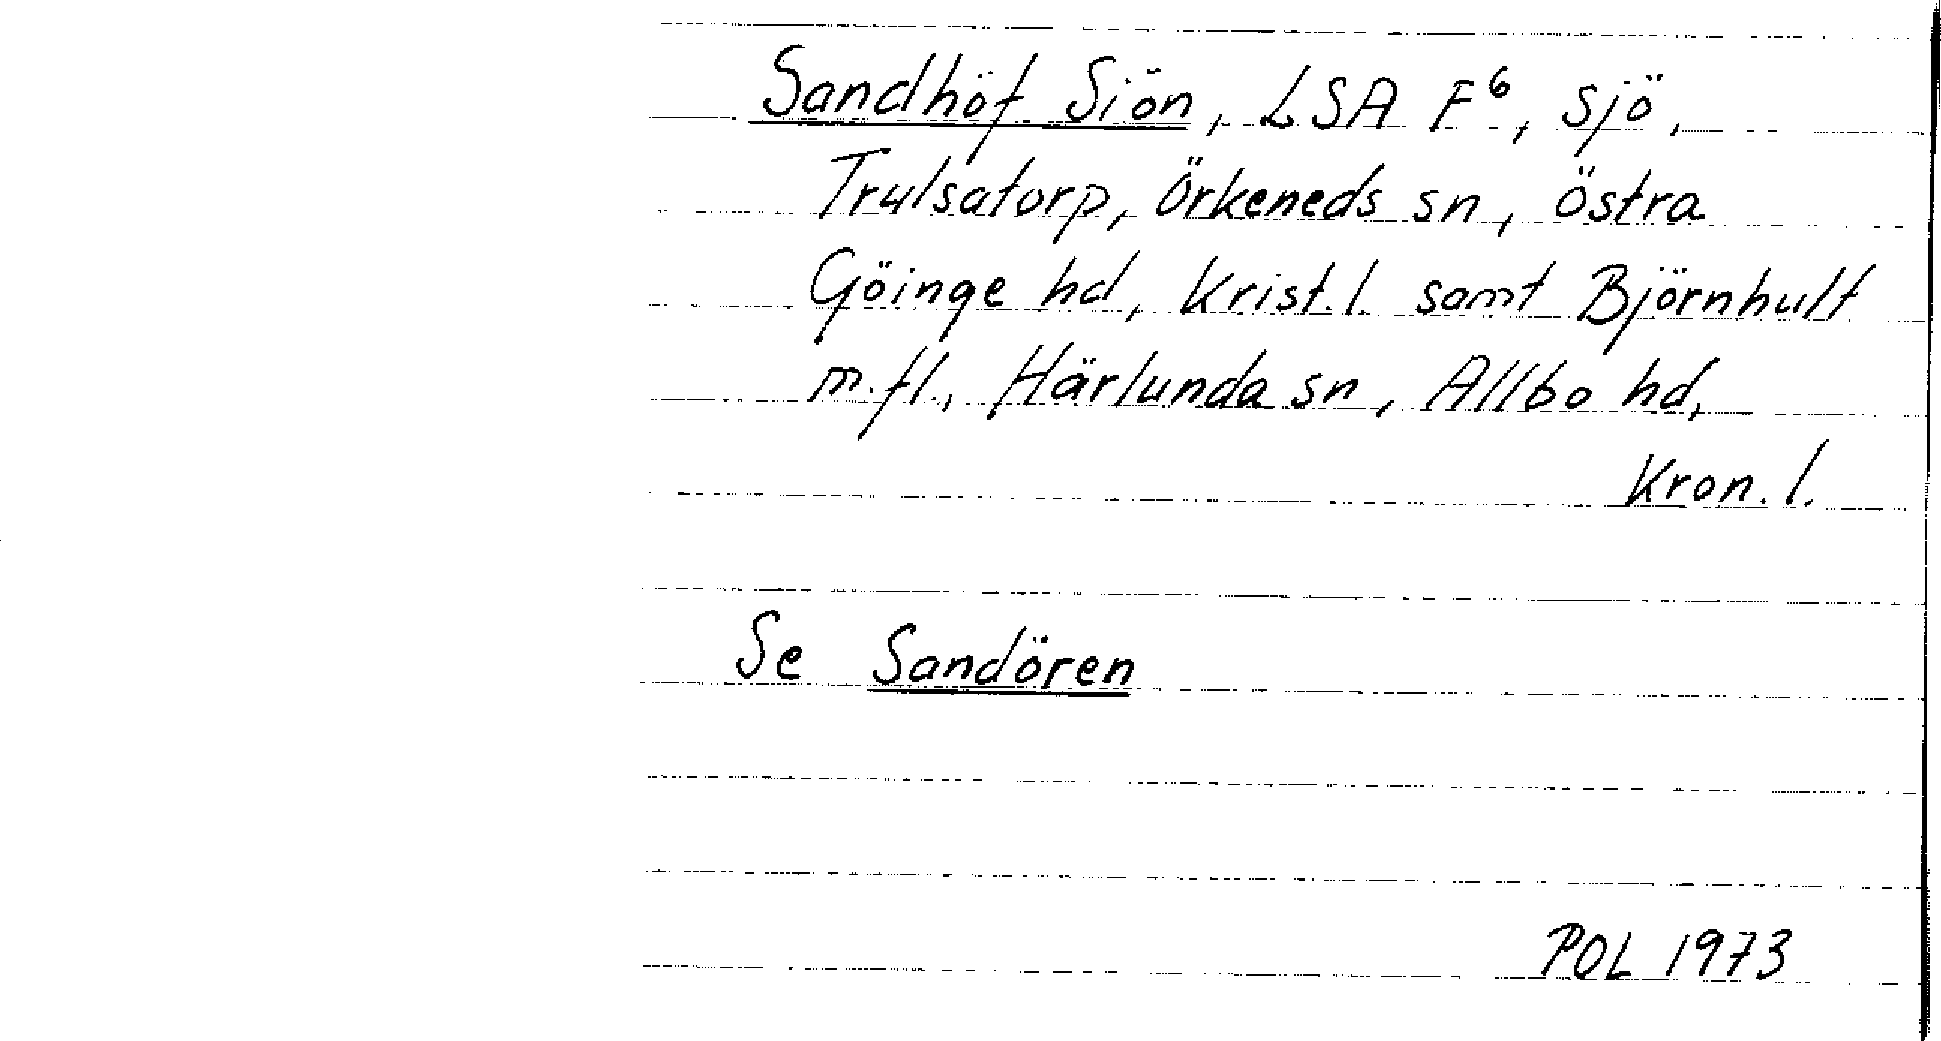 Sandhöf Siön, LSA F⁶, sjö,
Trulsatorp, Örkeneds sn, Östra
Göinge hd, Krist. l. samt Björnhult
m. fl., Härlunda sn, Allbo hd,
Kron. l.
Se Sandören
POL 1973